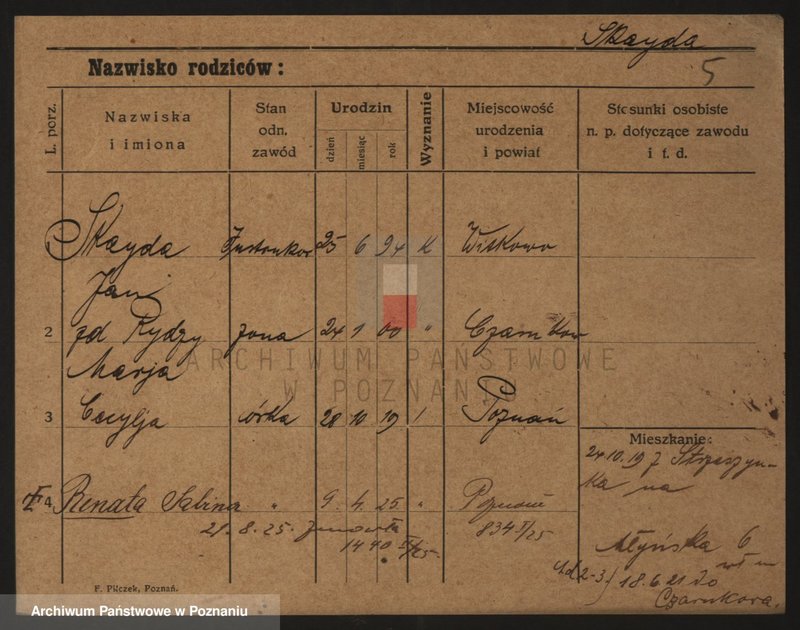 Skayda
5
Nazwisko rodziców:
L. porz.
Nazwiska
i imiona
Stan
odn.
zawód
Urodzin
dzień
miesiąc
rok
Wyznanie
Miejscowość
urodzenia
i powiat
Stosunki osobiste
n. p. dotyczące zawodu
i t. d.
1 Skayda 25 6 94 K Witkowo
Jan
2 zd Rydzy żona 24 1 00 " Czarnków
Marja
3 Cecylja córka 28 10 19 / Poznań
Mieszkanie:
24.10.19 z Strzaszyn-
ka na
4 Renata Sabina " 9. 4. 25 "
21. 8. 25. zmarła
1440 834 /25
Młyńska 6
2-3) 18.6.21 do
Czarnkowa.
F. Pilczek, Poznań.
ARCHIWUM PAŃSTWOWE
W POZNANIU
Archiwum Państwowe w Poznaniu